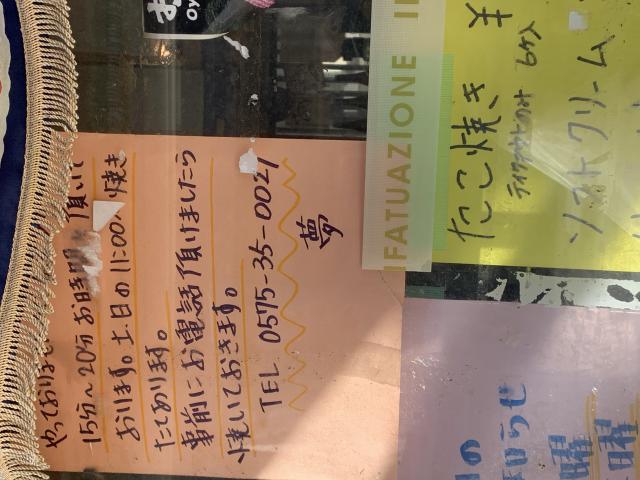 やっておりまし
15分〜20分お時間 頂いて
おります。土日の11:00〜焼き
たております。
事前にお電話頂けましたら
焼いておきます。
TEL 0575-35-0021
夢
FATUAZIONE
たこ焼き ¥
テイクアウトのみ 6ケ入
ソフトクリーム
の
知らせ
曜
曜